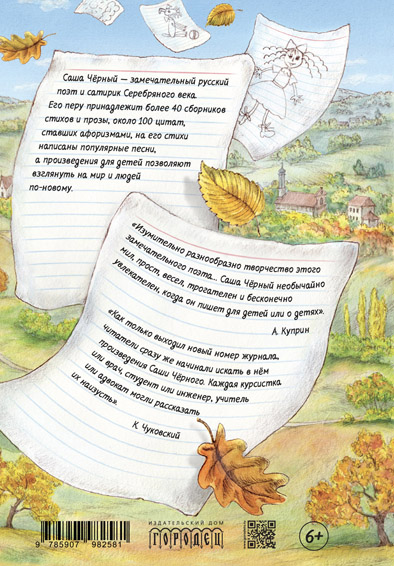 Саша Чёрный — замечательный русский
поэт и сатирик Серебряного века.
Его перу принадлежит более 40 сборников
стихов и прозы, около 100 цитат,
ставших афоризмами, на его стихи
написаны популярные песни,
а произведения для детей позволяют
взглянуть на мир и людей
по-новому.
«Изумительно разнообразно творчество этого
замечательного поэта... Саша Чёрный необычайно
мил, прост, весел, трогателен и бесконечно
увлекателен, когда он пишет для детей или о детях».
А. Куприн
«Как только выходил новый номер журнала,
читатели сразу же начинали искать в нём
произведения Саши Чёрного. Каждая курсистка
или врач, студент или инженер, учитель
или адвокат могли рассказать
их наизусть».
К. Чуковский
ИЗДАТЕЛЬСКИЙ ДОМ
ГОРОДЕЦ
6+
9 785907 982581